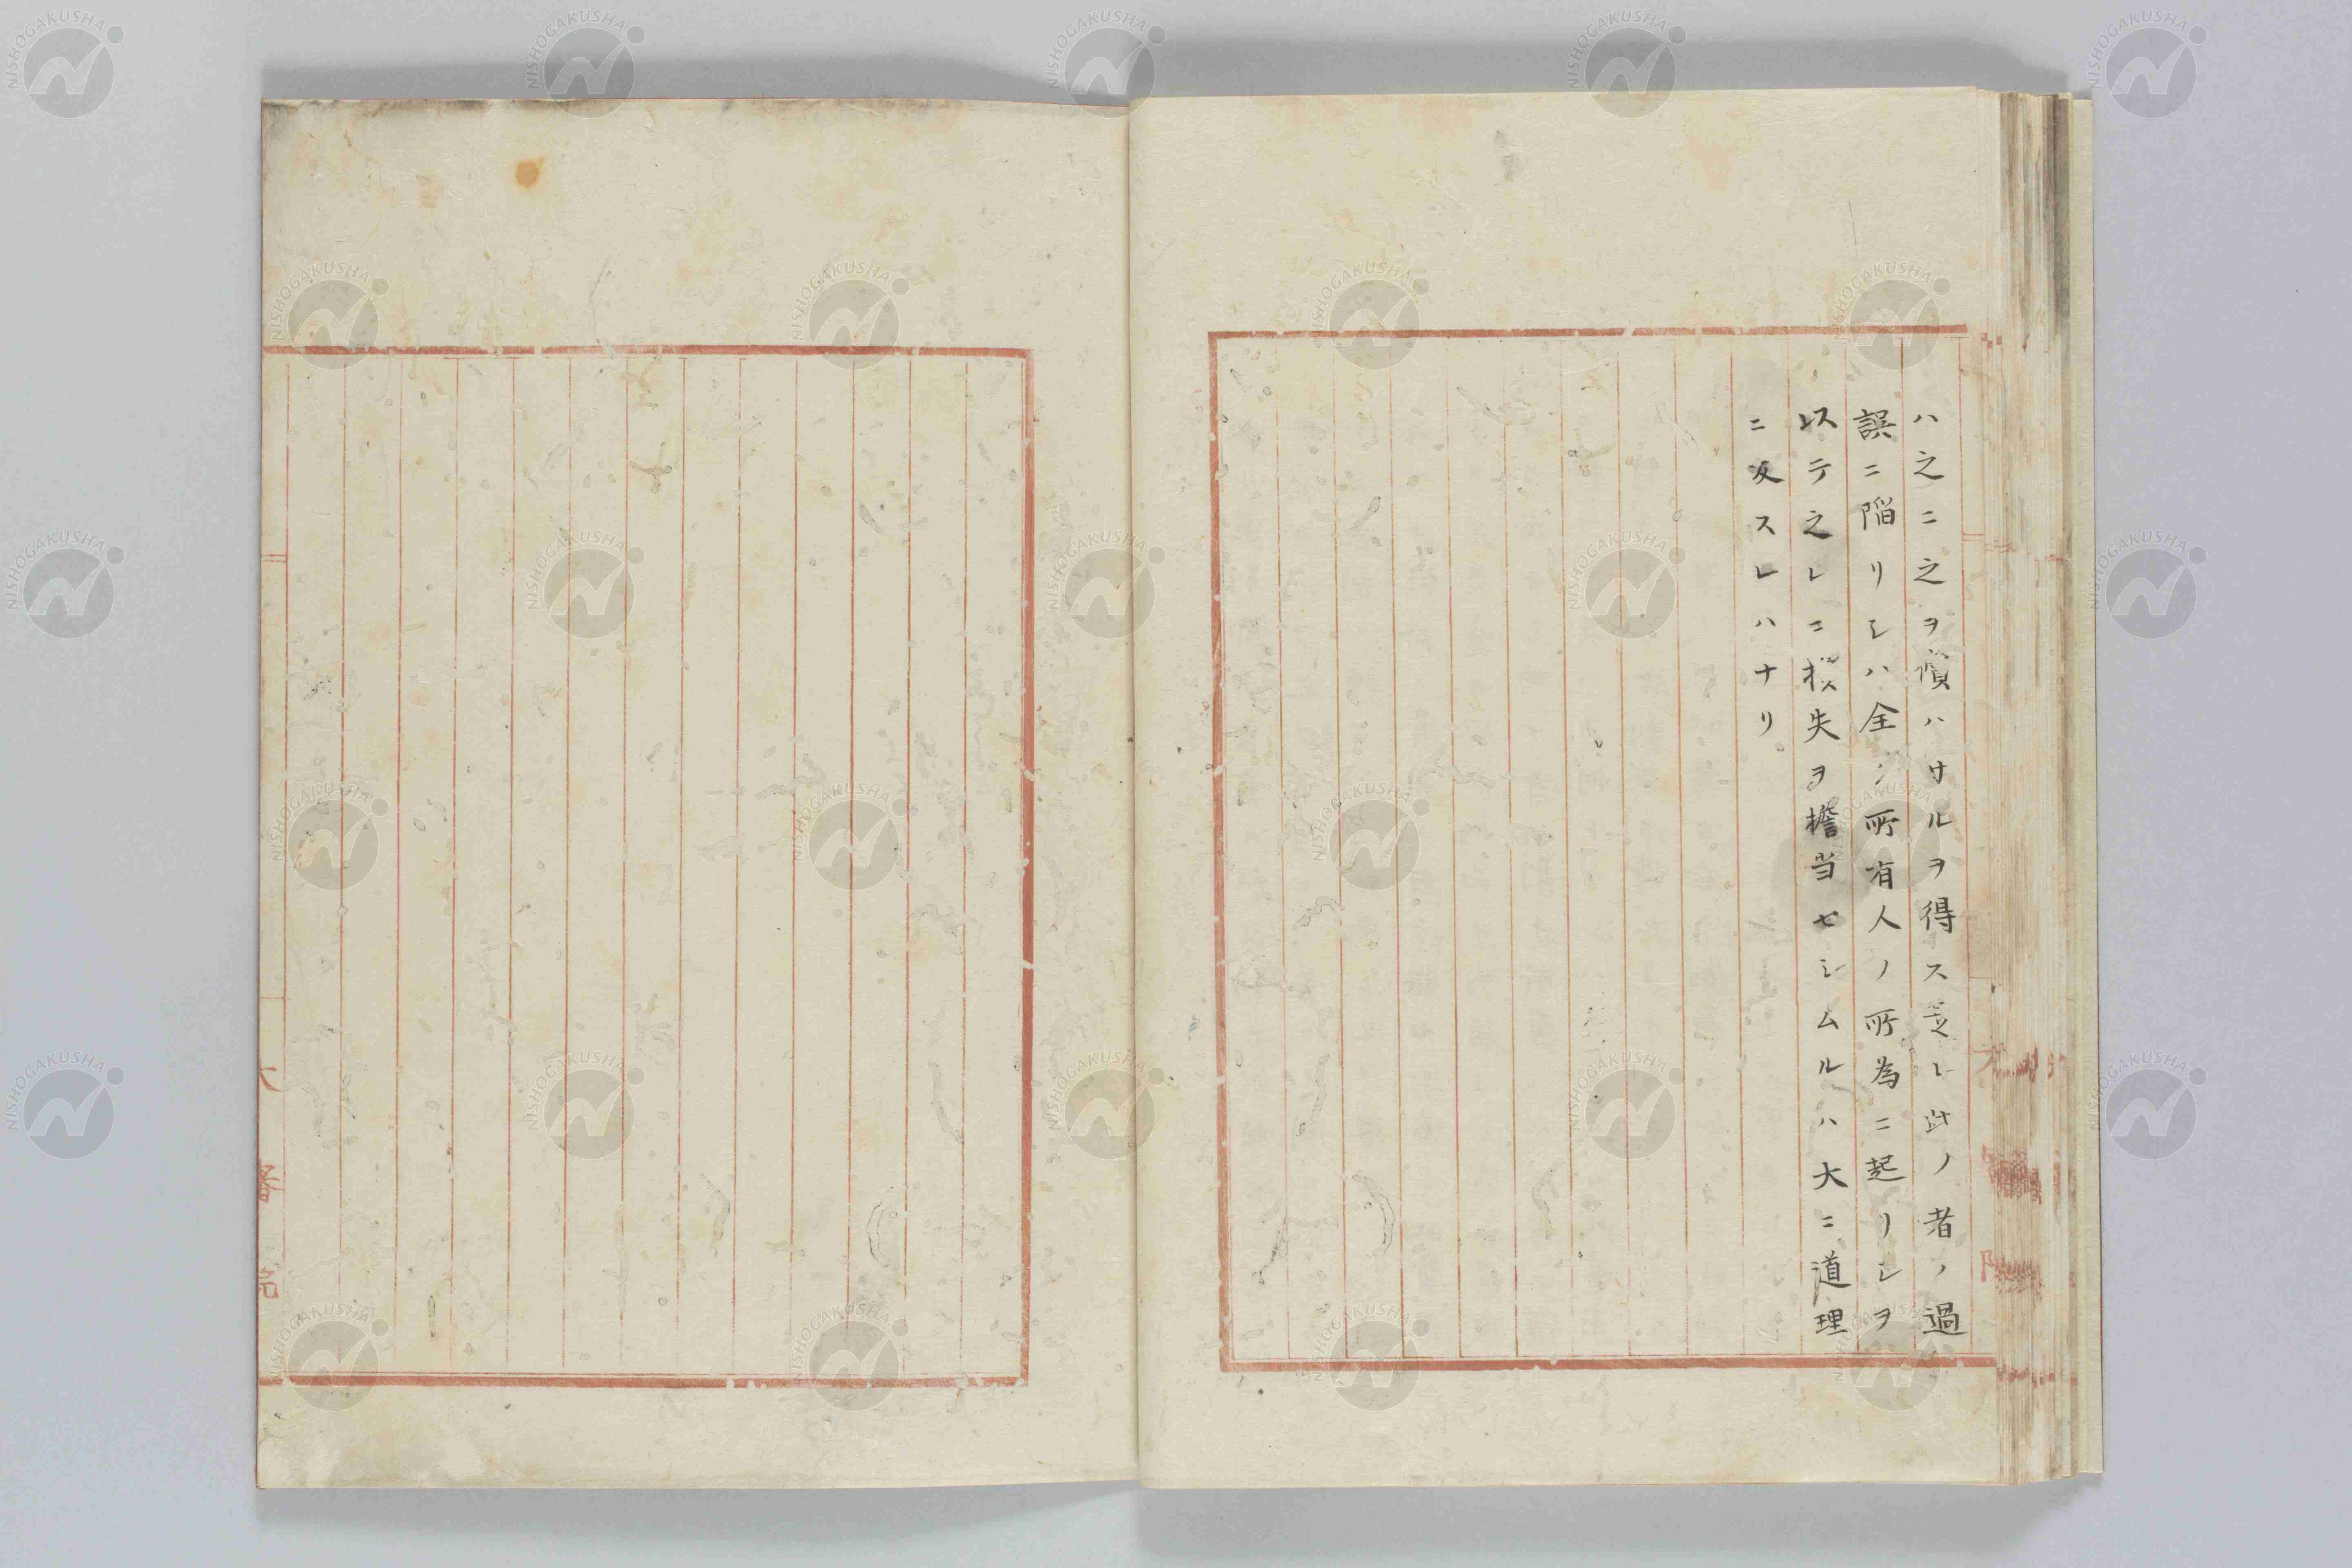 ハ之ニ之ヲ償ハサルヲ得ス是レ此ノ者ノ過
誤ニ陥リシハ全ク所有人ノ所為ニ起リシヲ
以テ之レニ損失ヲ擔当セシムルハ大ニ道理
ニ反スレハナリ。
大審院
NISHOGAKUSHA